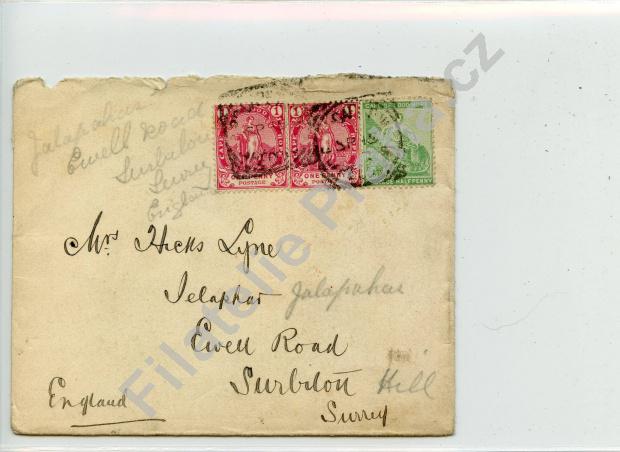 Jalapahar
Ewell Road
Surbiton
Surrey
England
CAPE OF GOOD HOPE
HALFPENNY
ONE PENNY
POSTAGE
ONE PENNY
POSTAGE
Mrs Hicks Lyne
Jelaphar Jalapahar
Ewell Road
Surbiton Hill
England
Surrey
Filatelie Praha.cz